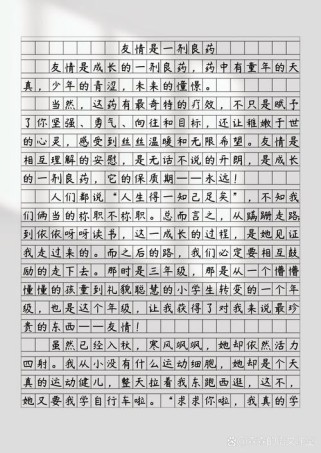 友情是一剂良药
友情是成长的一剂良药，药中有童年的天
真，少年的青涩，未来的憧憬。
当然，这药有最奇特的疗效，不只是赋予
了你坚强、勇气、向往和目标，还让稚嫩于世
的心灵，感受到丝丝温暖和无限希望。友情是
相互理解的安慰，是无话不说的开朗，是成长
的一剂良药，它的保质期——永远！
人们都说“人生得一知己足矣”，不知我
们俩当的称职不称职。总而言之，从蹒跚走路
到依依呀呀读书，这一成长的过程，是她见证
我走过来的。而之后的路，我们必定要相互鼓
励的走下去。那时是三年级，那是从一个懵懵
懂懂的孩童到礼貌聪慧的小学生转变的一个年
级，也是这个年级，让我获得了对我来说最珍
贵的东西——友情！
虽然已经入秋，寒风飒飒，她却依然活力
四射。我从小没有什么运动细胞，她却是个天
真的运动健儿，整天拉着我东跑西逛，这不，
她又要我学自行车啦。“求求你啦，我真的学